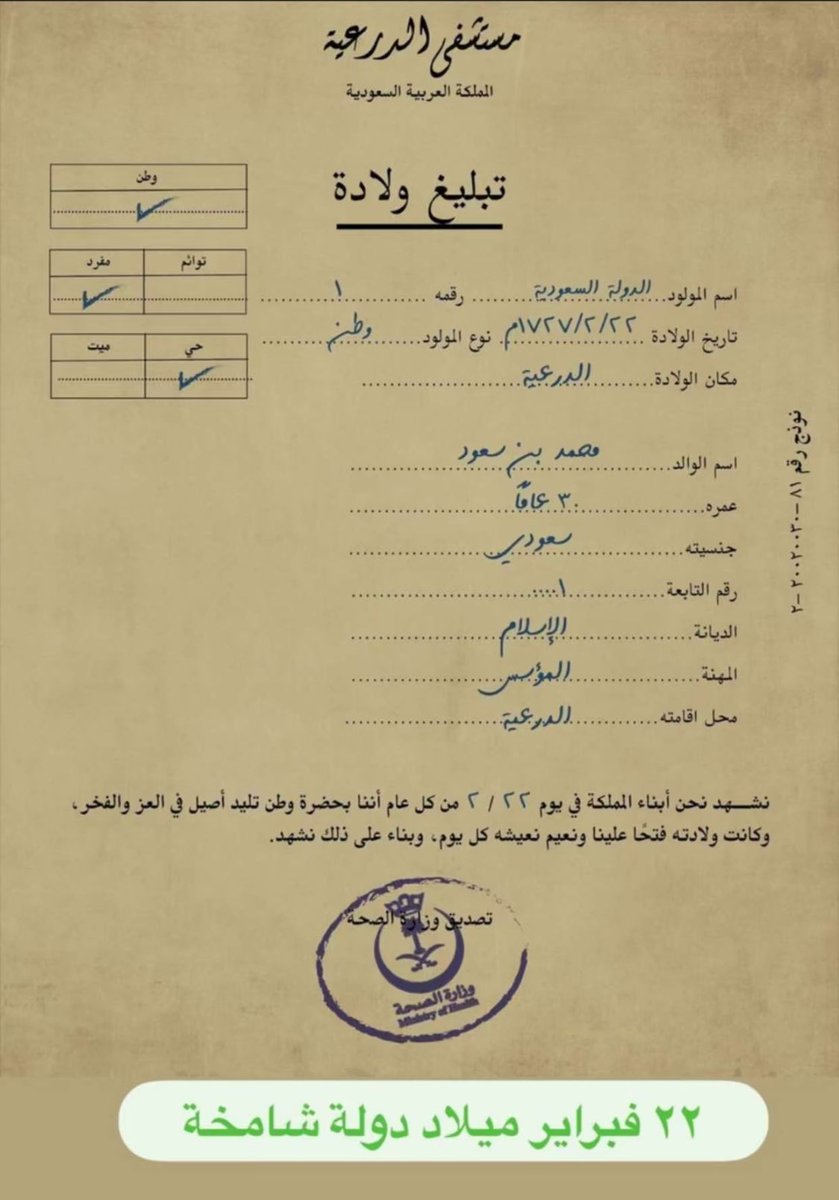 مستشفى الدرعية
المملكة العربية السعودية
تبليغ ولادة
وطن
توائم مفرد
حي ميت
اسم المولود الدولة السعودية رقمه ١
تاريخ الولادة ١٧٢٧/٢/٢٢م نوع المولود وطن
مكان الولادة الدرعية
اسم الوالد محمد بن سعود
عمره ٣٠ عامًا
جنسيته سعودي
رقم التابعة ١....
الديانة الإسلام
المهنة المؤسس
محل اقامته الدرعية
نموذج رقم ٨١ –٢٠٠٢٠٠٣٠ –٢
نشـــهد نحن أبناء المملكة في يوم ٢٢ / ٢ من كل عام أننا بحضرة وطن تليد أصيل في العز والفخر،
وكانت ولادته فتحًا علينا ونعيم نعيشه كل يوم، وبناء على ذلك نشهد.
تصديق وزارة الصحة
وزارة الصحة
Ministry of Health
٢٢ فبراير ميلاد دولة شامخة